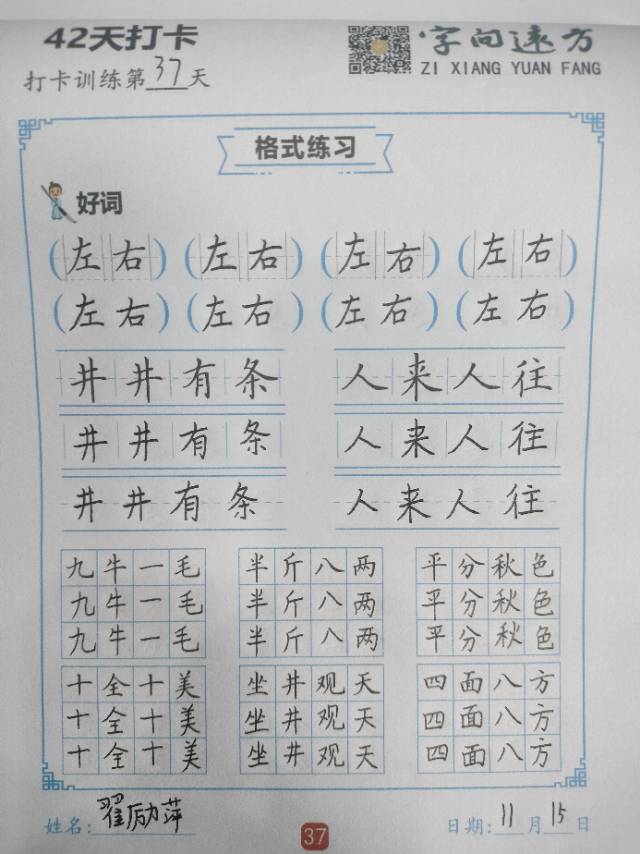 42天打卡
字向远方
打卡训练第37天
ZI XIANG YUAN FANG
格式练习
好词
(左右) (左右) (左右) (左右)
(左右) (左右) (左右) (左右)
井井有条 人来人往
井井有条 人来人往
井井有条 人来人往
九牛一毛 半斤八两 平分秋色
九牛一毛 半斤八两 平分秋色
九牛一毛 半斤八两 平分秋色
十全十美 坐井观天 四面八方
十全十美 坐井观天 四面八方
十全十美 坐井观天 四面八方
姓名:翟励萍 37 日期:11月15日